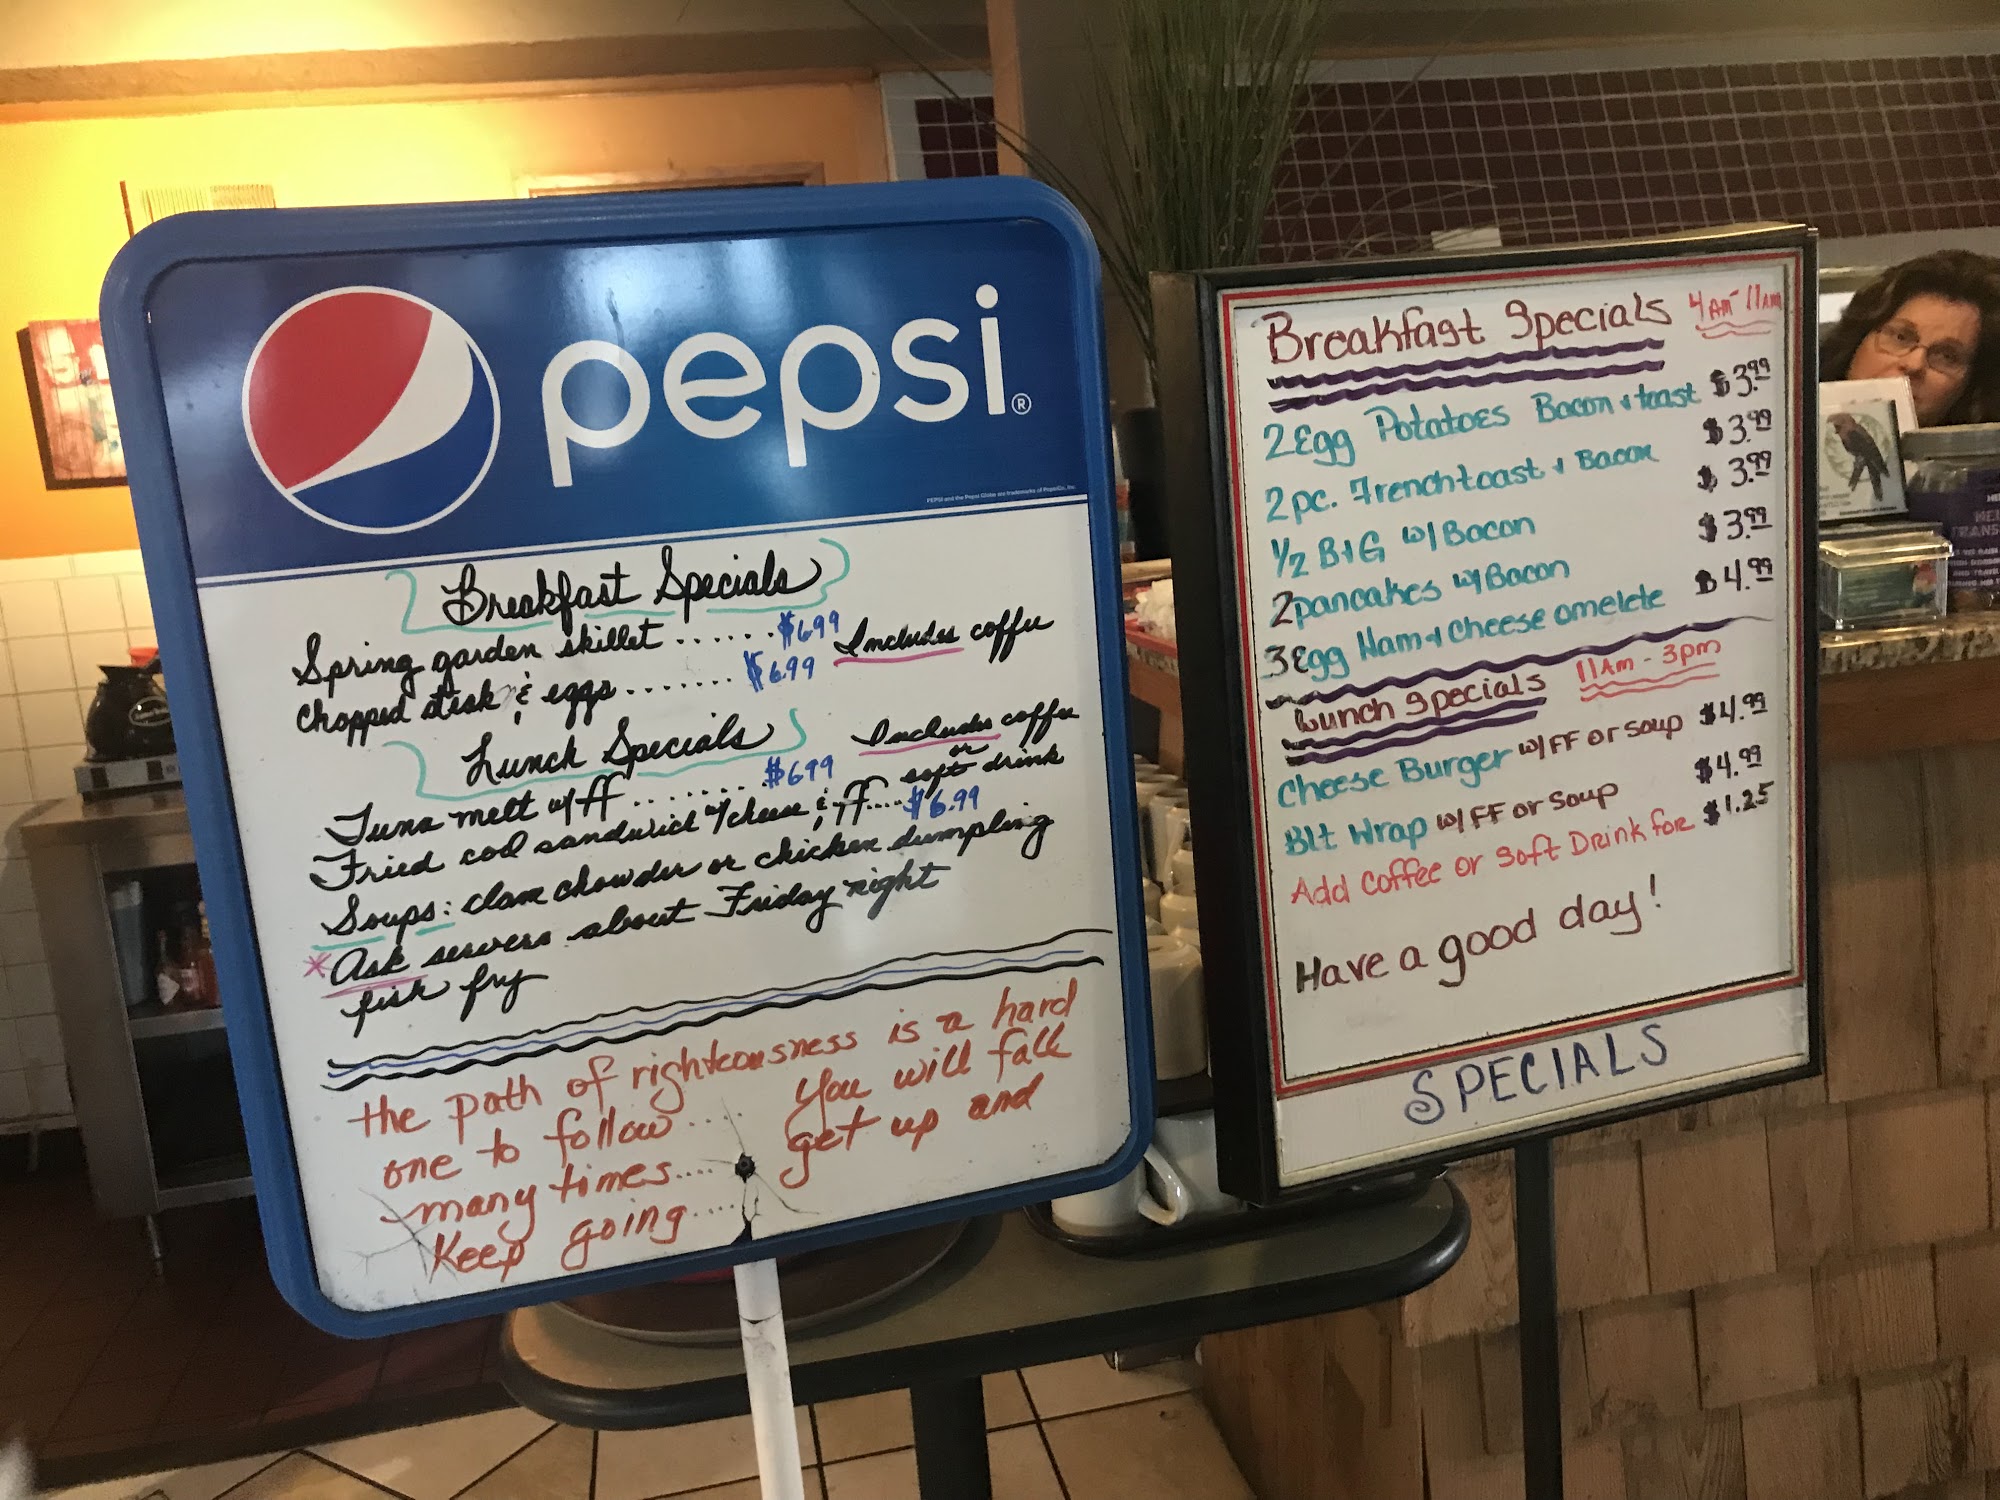 pepsi®
PEPSI and the Pepsi Globe are trademarks of PepsiCo, Inc.
Breakfast Specials
Spring garden skillet ...... $6.99 Includes coffee
Chopped steak & eggs ....... $6.99
Lunch Specials Includes coffee
or
soft drink
Tuna melt w/ff ........ $6.99
Fried cod sandwich w/cheese & ff.... $6.99
Soups: clam chowder or chicken dumpling
*Ask servers about Friday night
fish fry
the path of righteousness is a hard
one to follow .... You will fall
many times.... get up and
Keep going.....
Breakfast Specials 4AM-11AM
2 Egg Potatoes Bacon & toast $3.99
2 pc. Frenchtoast & Bacon $3.99
1/2 B+G w/ Bacon $3.99
2 pancakes w/ Bacon $3.99
3 Egg Ham & Cheese omelete $4.99
Lunch Specials 11Am - 3pm
Cheese Burger w/ FF or soup $4.99
Blt Wrap w/ FF or Soup $4.99
Add Coffee or Soft Drink for $1.25
Have a good day!
SPECIALS